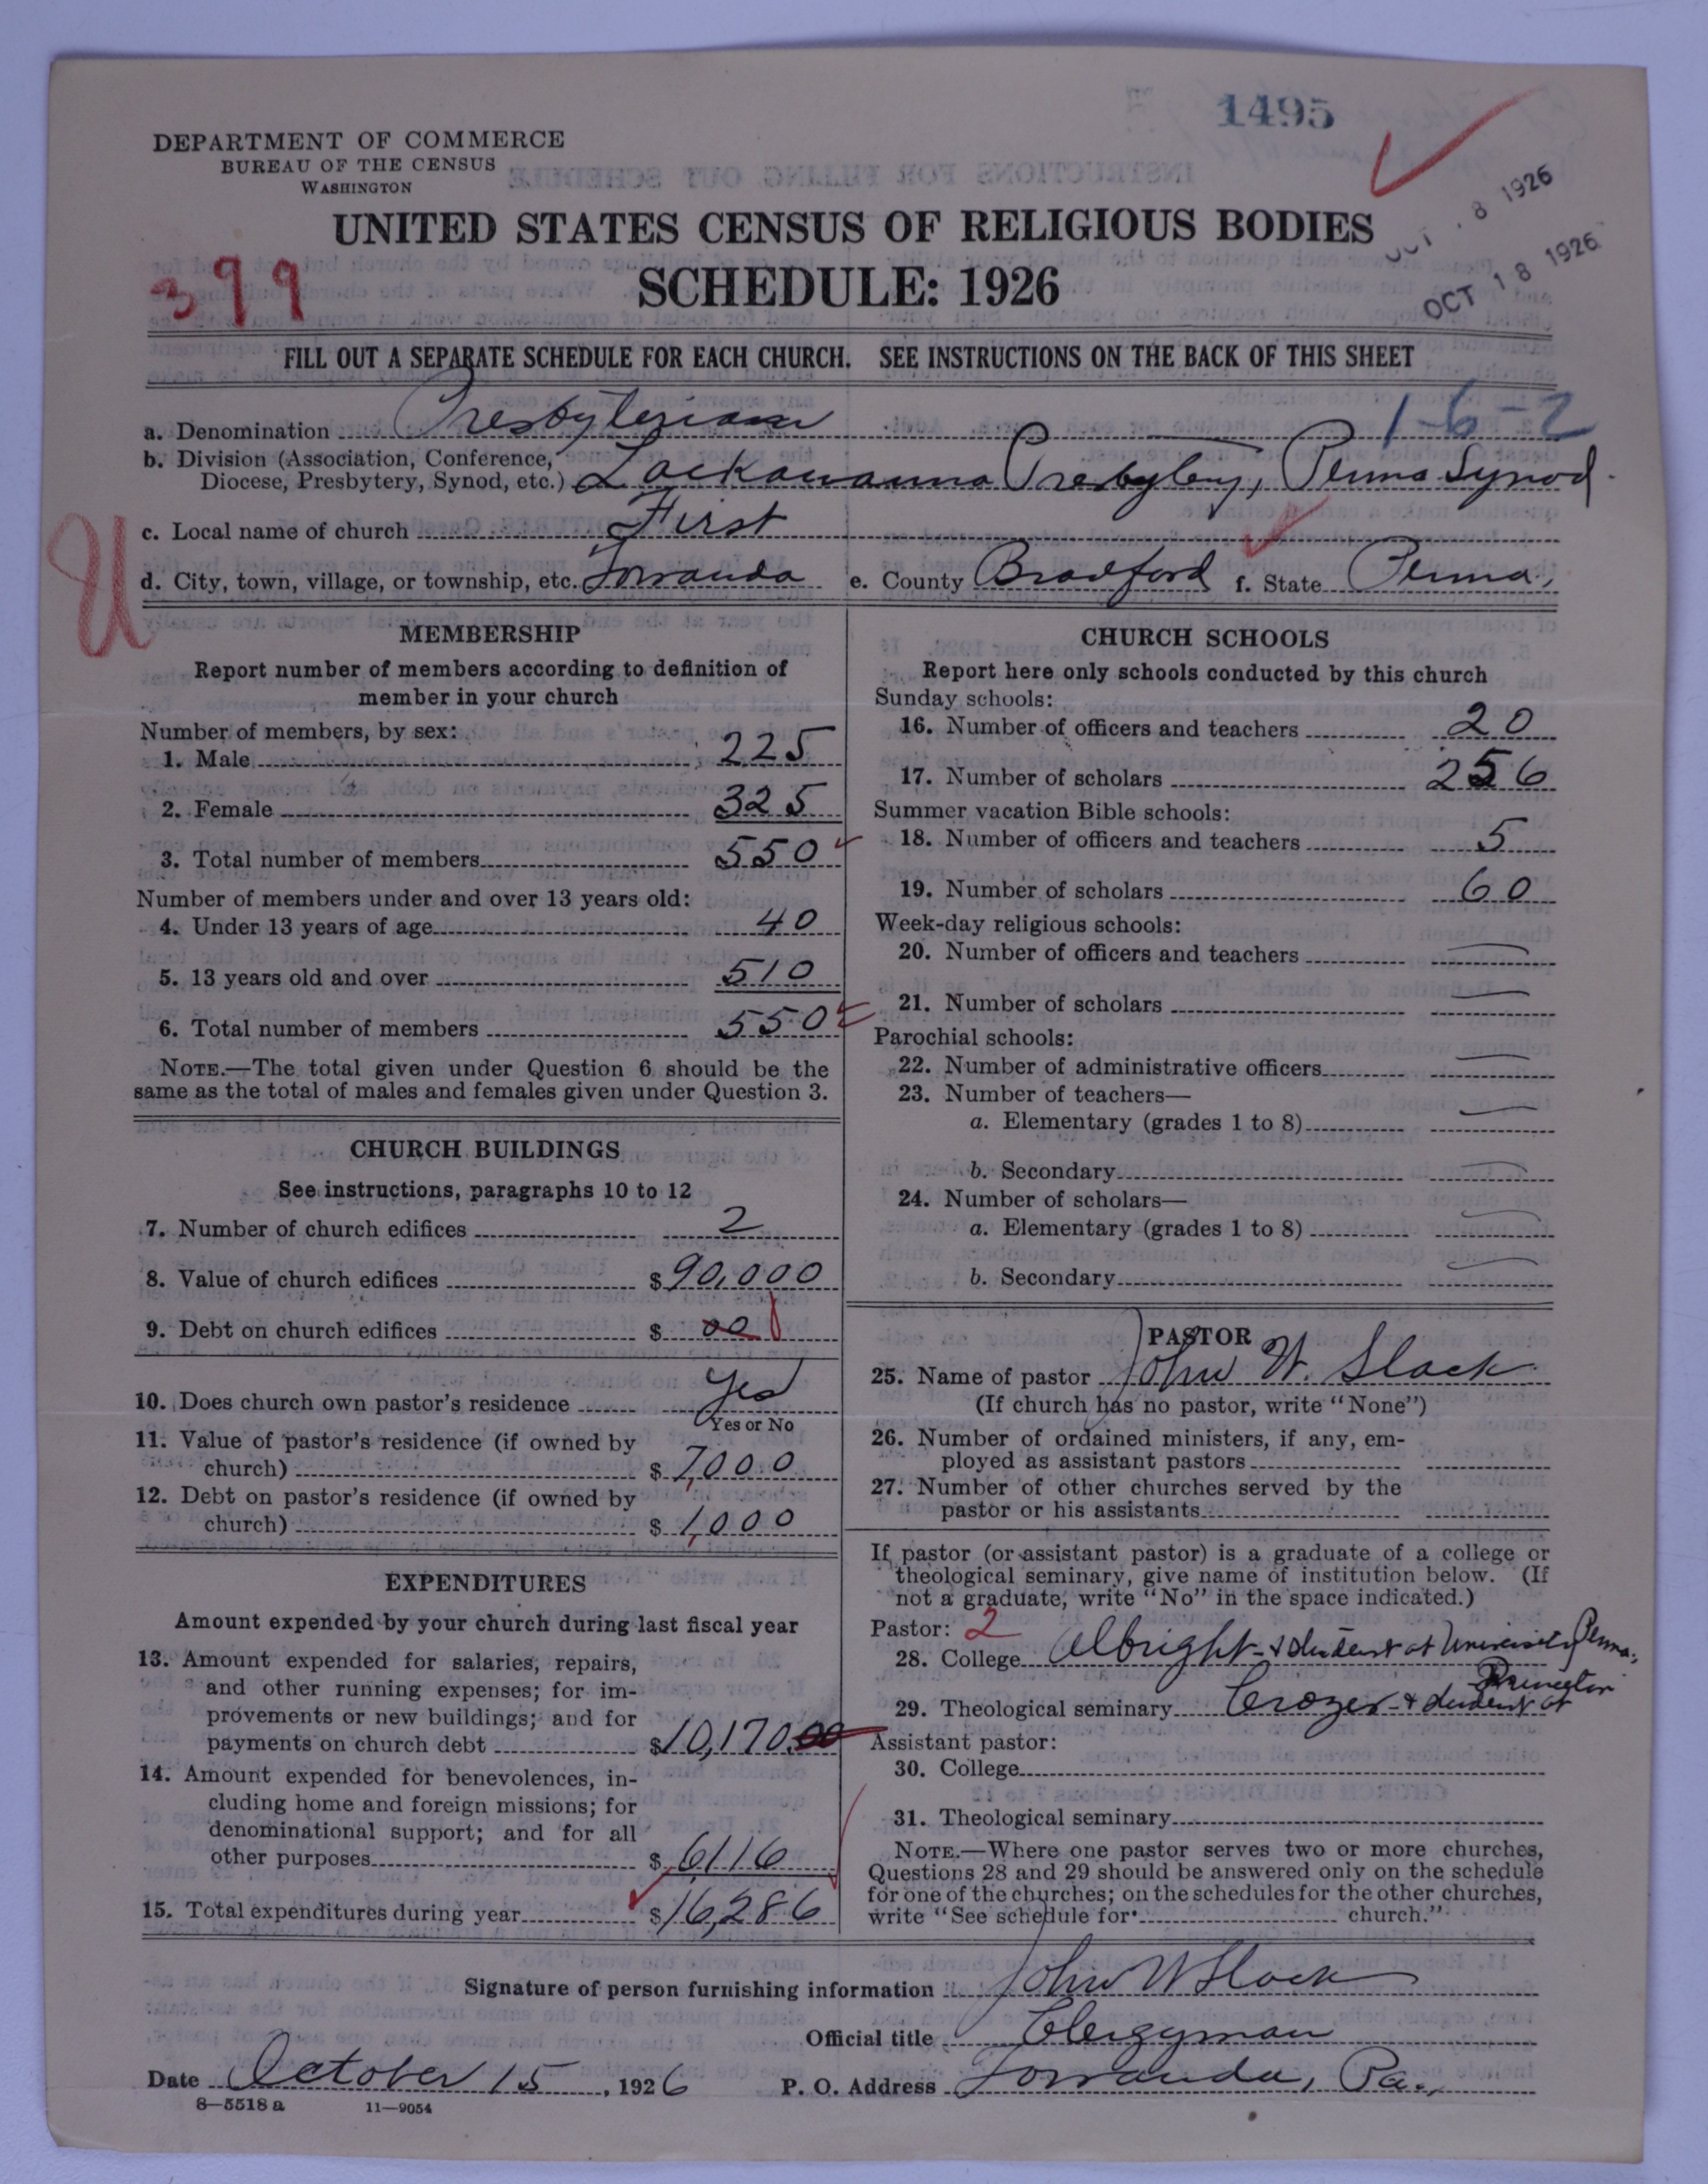 1495
DEPARTMENT OF COMMERCE
BUREAU OF THE CENSUS
WASHINGTON
OCT 8 1926
OCT 18 1926
UNITED STATES CENSUS OF RELIGIOUS BODIES
399
SCHEDULE: 1926
FILL OUT A SEPARATE SCHEDULE FOR EACH CHURCH. SEE INSTRUCTIONS ON THE BACK OF THIS SHEET
1-6-2
a. Denomination Presbyterian
b. Division (Association, Conference,
Diocese, Presbytery, Synod, etc.) Lackawanna Presbytery, Penna Synod.
c. Local name of church First
U
d. City, town, village, or township, etc. Towanda e. County Bradford f. State Penna.
MEMBERSHIP
Report number of members according to definition of
member in your church
Number of members, by sex:
1. Male 225
2. Female 325
3. Total number of members 550
Number of members under and over 13 years old:
4. Under 13 years of age 40
5. 13 years old and over 510
6. Total number of members 550
NOTE.—The total given under Question 6 should be the
same as the total of males and females given under Question 3.
CHURCH BUILDINGS
See instructions, paragraphs 10 to 12
7. Number of church edifices 2
8. Value of church edifices $90,000
9. Debt on church edifices $ 00
10. Does church own pastor's residence Yes
Yes or No
11. Value of pastor's residence (if owned by
church) $ 7,000
12. Debt on pastor's residence (if owned by
church) $ 1,000
EXPENDITURES
Amount expended by your church during last fiscal year
13. Amount expended for salaries, repairs,
and other running expenses; for im-
provements or new buildings; and for
payments on church debt $10,170.00
14. Amount expended for benevolences, in-
cluding home and foreign missions; for
denominational support; and for all
other purposes $ 6116
15. Total expenditures during year $16,286
CHURCH SCHOOLS
Report here only schools conducted by this church
Sunday schools:
16. Number of officers and teachers 20
17. Number of scholars 256
Summer vacation Bible schools:
18. Number of officers and teachers 5
19. Number of scholars 60
Week-day religious schools:
20. Number of officers and teachers —
21. Number of scholars —
Parochial schools:
22. Number of administrative officers —
23. Number of teachers—
a. Elementary (grades 1 to 8) —
b. Secondary —
24. Number of scholars—
a. Elementary (grades 1 to 8) —
b. Secondary —
PASTOR
25. Name of pastor John W. Slack
(If church has no pastor, write "None")
26. Number of ordained ministers, if any, em-
ployed as assistant pastors
27. Number of other churches served by the
pastor or his assistants
If pastor (or assistant pastor) is a graduate of a college or
theological seminary, give name of institution below. (If
not a graduate, write "No" in the space indicated.)
Pastor: 2
28. College Albright & student at University Penna.
29. Theological seminary Crozer & student at Princeton
Assistant pastor:
30. College
31. Theological seminary
NOTE.—Where one pastor serves two or more churches,
Questions 28 and 29 should be answered only on the schedule
for one of the churches; on the schedules for the other churches,
write "See schedule for church."
Signature of person furnishing information John W Slack
Official title Clergyman
Date October 15, 1926 P. O. Address Towanda, Pa.
8—5518 a 11—9054